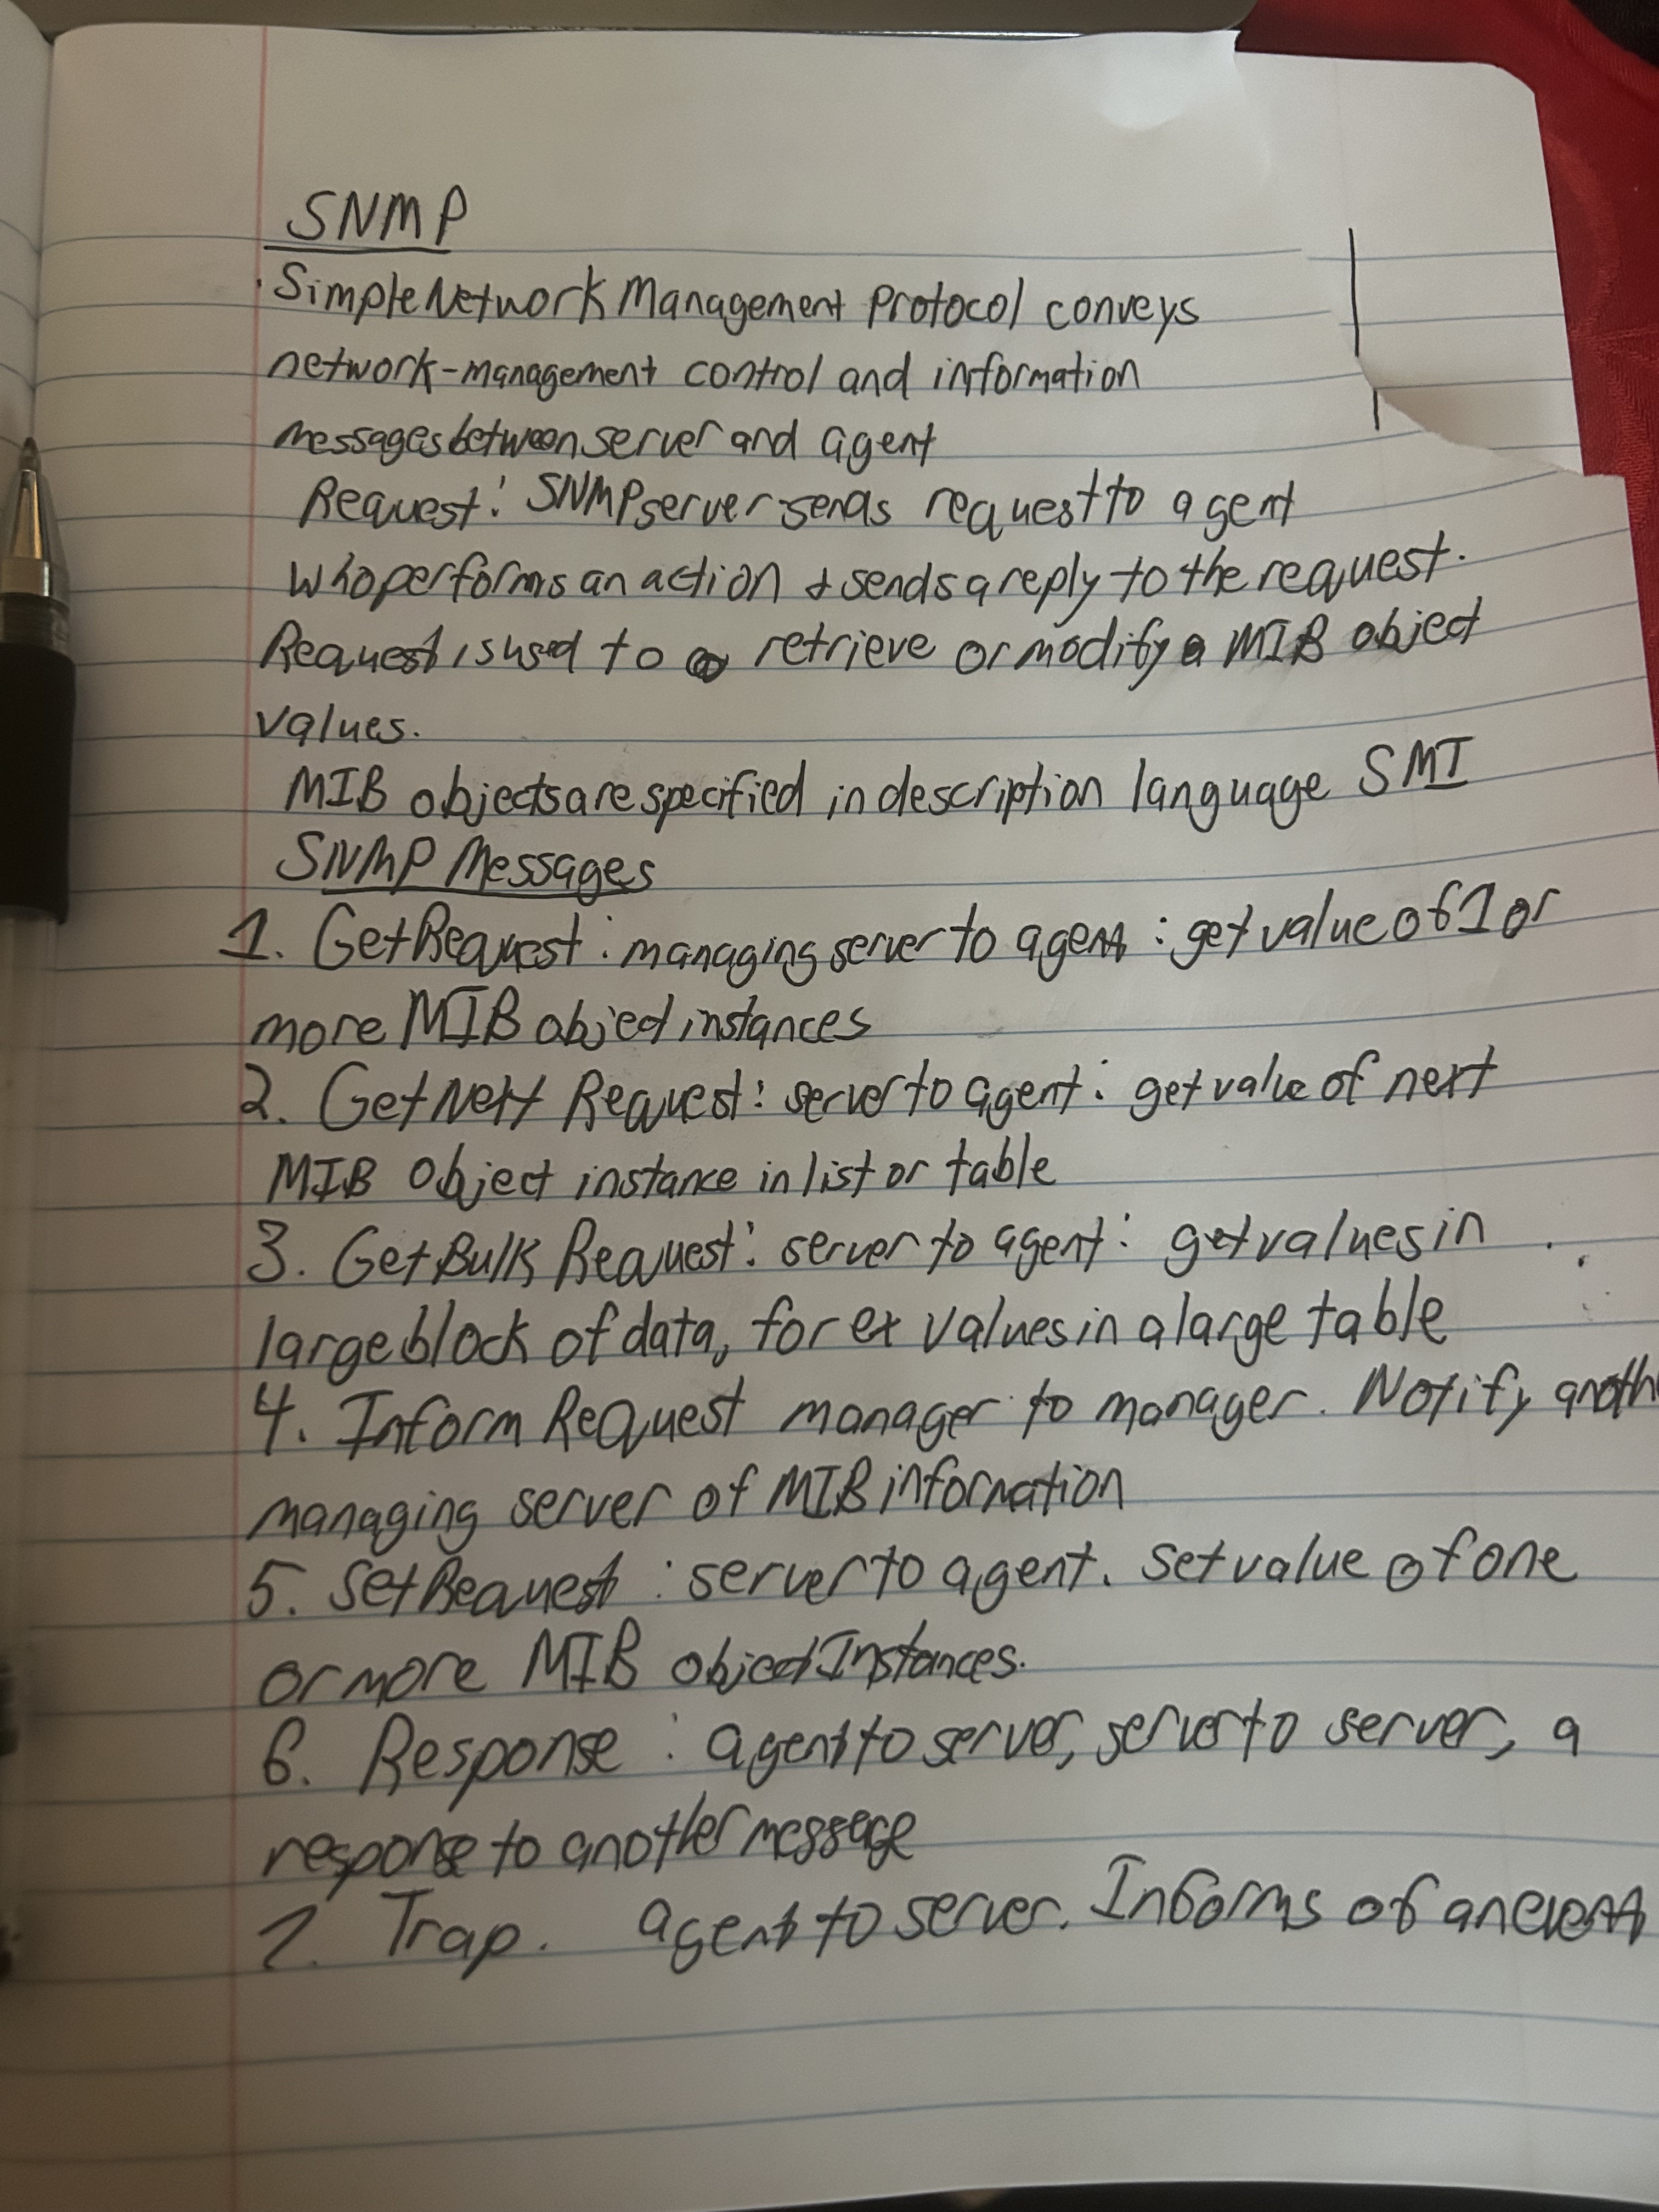 SNMP
· Simple Network Management Protocol conveys
network-management control and information
messages between server and agent
Request: SNMP server sends request to agent
who performs an action & sends a reply to the request.
Request is used to retrieve or modify a MIB object
values.
MIB objects are specified in description language SMI
SNMP Messages
1. GetRequest: managing server to agent: get value of 1 or
more MIB object instances
2. GetNext Request: server to agent: get value of next
MIB Object instance in list or table
3. GetBulk Request: server to agent: get values in
large block of data, for ex values in a large table
4. Inform Request manager to manager. Notify anoth
managing server of MIB information
5. SetRequest: server to agent. Set value of one
or more MIB object Instances.
6. Response: agent to server, server to server, a
response to another message
7. Trap. agent to server. Informs of an event